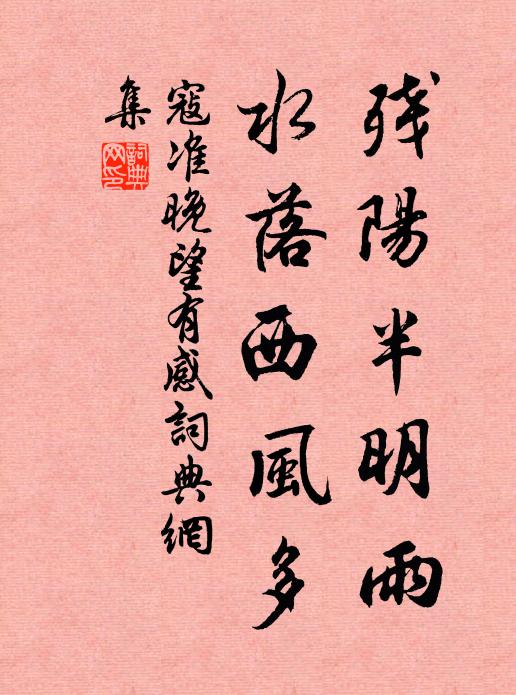 残陽半明雨
水落西風多
寇准晚望有感詞典網
集
詞典
网印